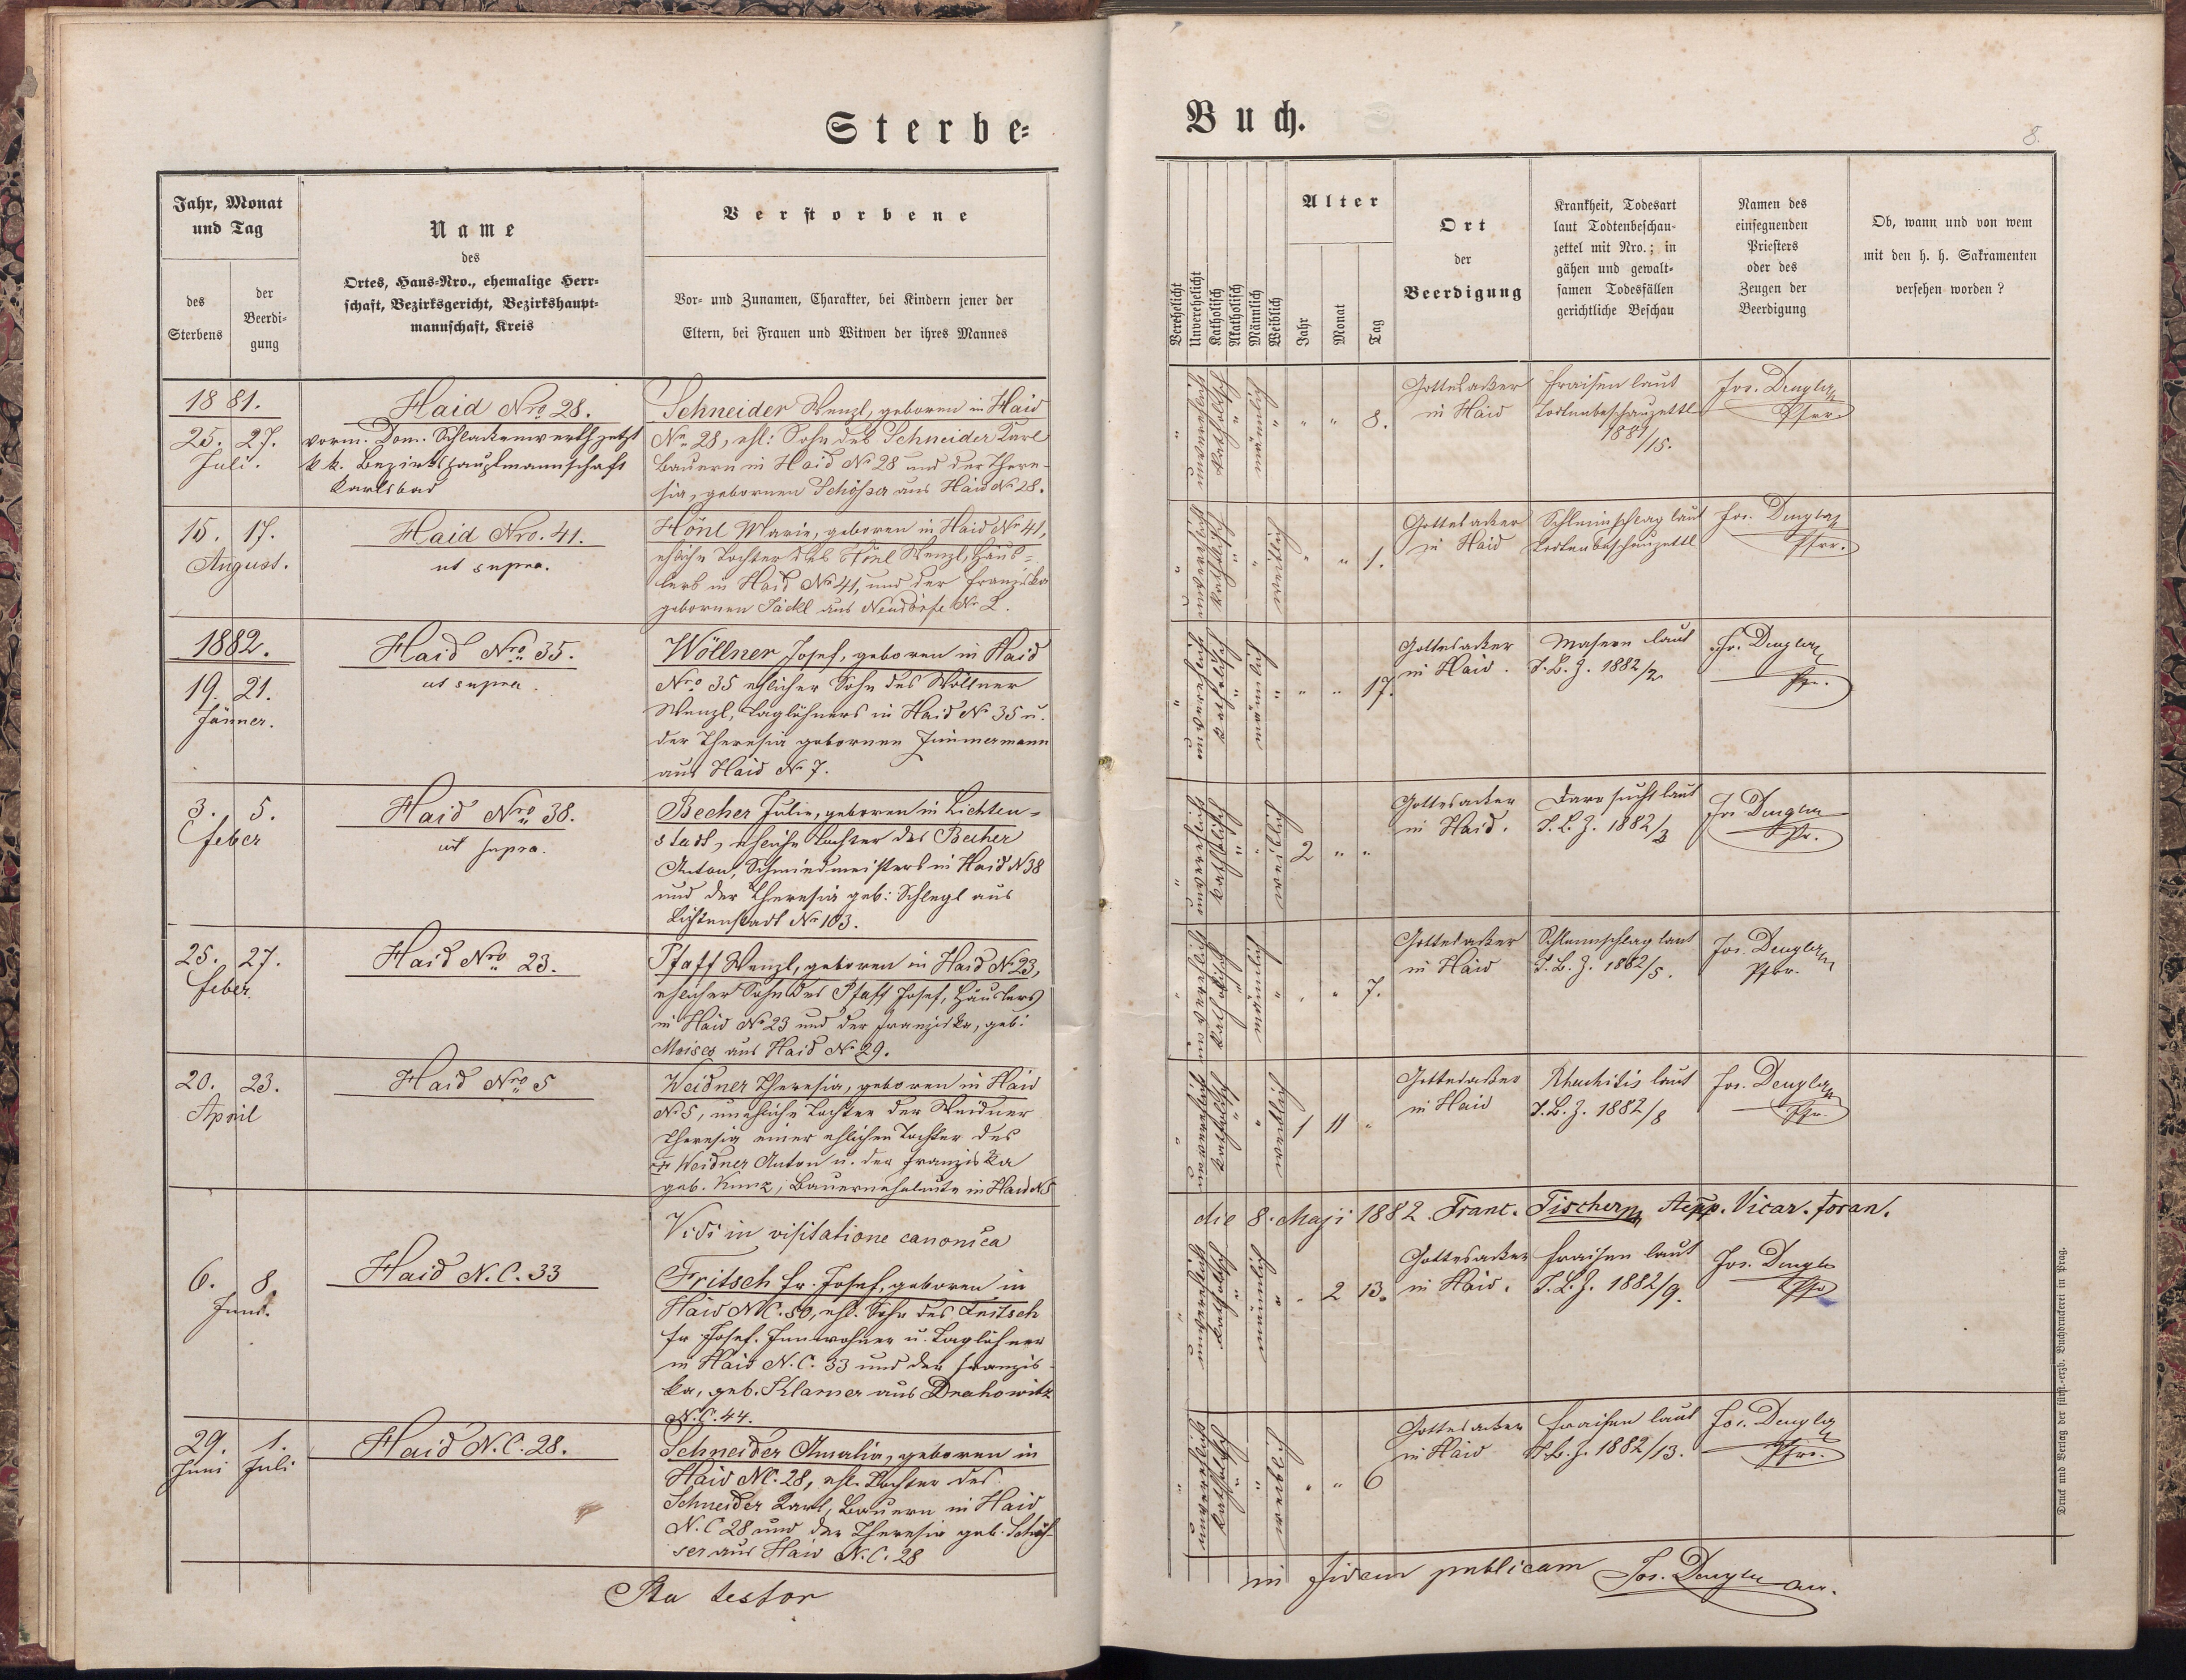 Sterbe-
Buch.
8.
Jahr, Monat
und Tag
des
Sterbens
der
Beerdi-
gung
Name
des
Ortes, Haus-Nro., ehemalige Herr-
schaft, Bezirksgericht, Bezirkshaupt-
mannschaft, Kreis
Verstorbene
Vor- und Zunamen, Charakter, bei Kindern jener der
Eltern, bei Frauen und Witwen der ihres Mannes
Verehelicht
Unverehelicht
Katholisch
Akatholisch
Männlich
Weiblich
Alter
Jahr
Monat
Tag
Ort
der
Beerdigung
Krankheit, Todesart
laut Todtenbeschau-
zettel mit Nro.; in
gähen und gewalt-
samen Todesfällen
gerichtliche Beschau
Namen des
einsegnenden
Priesters
oder des
Zeugen der
Beerdigung
Ob, wann und von wem
mit den h. h. Sakramenten
versehen worden?
1881.
25. 27.
Juli.
Haid Nro 28.
vorm. Dom. Schlackenwerth jetzt
k. k. Bezirkshauptmannschaft
Karlsbad
Schneider Wenzl, geboren in Haid
No 28, ehl: Sohn des Schneider Karl
Bauern in Haid No 28 und der There-
sia, gebornen Schösser aus Haid No 28.
unverehelicht
katholisch
männlich
" " 8.
Gottesacker
in Haid
Fraisen laut
Todtenbeschauzettl
1881/15.
Jos. Dengler
Pfrr.
15. 17.
August.
Haid Nro. 41.
ut supra.
Hönl Marie, geboren in Haid No 41,
ehliche Tochter des Hönl Wenzl, Häus-
lers in Haid No 41, und der Franziska
gebornen Jäckl aus Neudörfl No 2.
unverehelicht
katholisch
weiblich
" " 1.
Gottesacker
in Haid
Schleimschlag laut
Todtenbeschauzettl
Jos. Dengler
Pfrr.
1882.
19. 21.
Jänner.
Haid Nro 35.
ut supra.
Wöllner Josef, geboren in Haid
Nro 35 ehlicher Sohn des Wöllner
Wenzl, Taglöhners in Haid No 35 u.
der Theresia gebornen Zimmermann
aus Haid No 7.
unverehelicht
katholisch
männlich
" " 17.
Gottesacker
in Haid.
Masern laut
T. B. Z. 1882/2
Jos. Dengler
Pfr.
3. 5.
Feber
Haid Nro 38.
ut supra.
Becher Julie, geboren in Lichten-
stadt, eheliche Tochter des Becher
Anton, Schmiedmeisters in Haid N 38
und der Theresia geb: Schlegl aus
Lichtenstadt No 103.
unverehelicht
katholisch
weiblich
2 " "
Gottesacker
in Haid.
Darrsucht laut
T. B. Z. 1882/3
Jos. Dengler
Pfr.
25. 27.
Feber.
Haid Nro 23.
Pfaff Wenzl, geboren in Haid No 23,
ehlicher Sohn des Pfaff Josef, Häuslers
in Haid No 23 und der Franziska, geb:
Moises aus Haid No 29.
unverehelicht
katholisch
männlich
" " 7.
Gottesacker
in Haid
Schleimschlag laut
T. B. Z. 1882/5.
Jos. Dengler
Pfrr.
20. 23.
April
Haid Nro 5
Weidner Theresia, geboren in Haid
No 5, unehliche Tochter der Weidner
Theresia einer ehlichen Tochter des
Weidner Anton u. der Franziska
geb. Kunz, Bauerneheleute in Haid No 5
unverehelicht
katholisch
weiblich
1 11 "
Gottesacker
in Haid
Rhachitis laut
T. B. Z. 1882/8
Jos. Dengler
Pfr.
Vidi in visitatione canonica
die 8. Maji 1882. Franc. Tischer Vicar. foran.
6. 8.
Juni.
Haid N. C. 33
Fritsch Fr. Josef, geboren in
Haid NC. 50, ehl. Sohn des Fritsch
Fr Josef. Innwohner u. Taglöhner
in Haid N. C. 33 und der Franzis-
ka, geb. Klarner aus Drahowitz
N. C. 44.
unverehelicht
katholisch
männlich
" 2 13.
Gottesacker
in Haid.
Fraisen laut
T. B. Z. 1882/9.
Jos. Dengler
Pfr
29. 1.
Juni Juli
Haid N. C. 28.
Schneider Amalia, geboren in
Haid NC. 28, ehl. Tochter des
Schneider Karl, Bauern in Haid
N. C 28 und der Theresia geb. Schös-
ser aus Haid N. C. 28
unverehelicht
katholisch
weiblich
" " 6
Gottesacker
in Haid
Fraisen laut
T. B. Z. 1882/13.
Jos. Dengler
Pfrr.
Ita testor
in fidem publicam Jos. Dengler
Druck und Verlag der fürst.-erzb. Buchdruckerei in Prag.